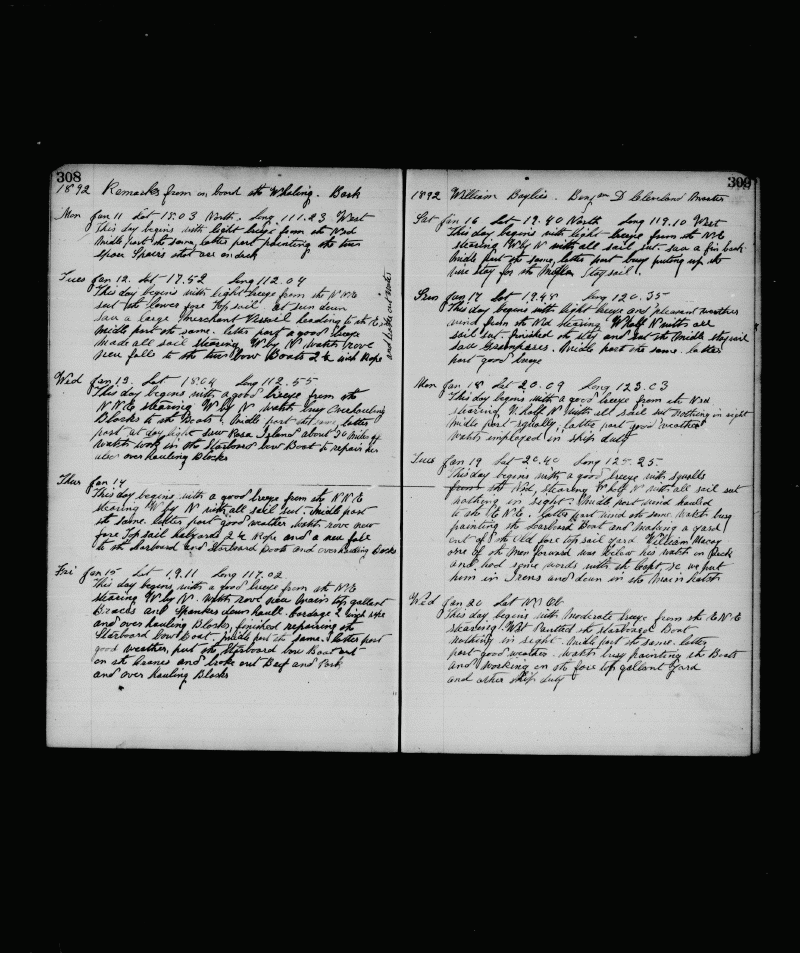 308
1892 Remarks from on board the Whaling. Bark
Mon Jan 11 Lat 18.03 North. Long 111.23 West
This day begins with light breeze from the N&d
Midle part the same, latter part painting the two
spair Spaires that are on deck
Tues Jan 12. Lat 17.52 Long 112.04
This day begins with light breeze from the N N E
sat the lower fore Topsail. at sun down
saw a large Merchant Vessel heading to the E
Midle part the same. latter part a good breeze
made all sail stearing W by N watch rove
new falls to the two bow Boats 2 ¼ inch Rope
and broke out water
Wed Jan 13. Lat 18.04 Long 112.55
This day begins with a good breeze from the
N N E stearing W by N watch busy Overhauling
Blocks to the Boats. Midle part the same, latter
part at day light saw Rosa Island about 30 Miles of
watch work on the Starboard bow Boat to repair her
also over hauling Blocks
Thur Jan 14
This day begins with a good breeze from the N N E
stearing W by N with all sail sut. Midle part
the same. latter part good weather watch rove new
fore Topsail halyards 2 ¼ Rope and a new fale
to the Starboard and Starboard Boats and overhauling Blocks
Fri Jan 15 Lat 19.11 Long 117.02
This day begins with a good breeze from the N E
stearing W by N. watch rove new Main top gallant
Braces and Spankers down hault. Cordage 2 inch
and over hauling Blocks, finished repairing the
Starboard bow boat. Midle part the same. latter part
good weather, put the Starboard bow Boat out
on the Cranes and broke out Beef and Pork
and over hauling Blocks
309
1892 William Baylies. Benj an D Cleveland Master
Sat Jan 16 Lat 19.40 North Long 119.10 West
This day begins with light breeze from the N E
stearing W by N with all sail sut saw a fin back
Midle part the same, latter part busy puting up the
wire stay for the Stay sail.
Sun Jan 17 Lat 19.48. Long 120.35
This day begins with light breeze and pleasant weather
wind from the N&d stearing W half N with all
sail sut. finished the stay and sut the Midle staysail
saw Grampuses. Midle part the same. latter
part good breeze
Mon Jan 18 Lat 20.09 Long 123.03
This day begins with a good breeze from the N&d
stearing W half N with all sail sut nothing in sight
Midle part squally, latter part good weather
watch employed in ships duty
Tues Jan 19 Lat 20.40 Long 125.25.
This day begins with a good breeze with squalls
from the N&d, stearing W half N with all sail sut
nothing in sight. Midle part wind hauled
to the E N E. latter part wind the same watch busy
painting the Larboard Boat and making a yard
out of the old fore top sail yard William Macoy
one of the Men forward was below his watch on deck
and had some words with the Capt so we put
him in Irons and down in the Main hatch
Wed Jan 20 Lat No Ob
This day begins with Moderate breeze from the E N E
stearing West Painted the starboard Boat
nothing in sight. Midle part the same. latter
part good weather. watch busy painting the Boats
and working on the fore top gallant yard
and other ship duty